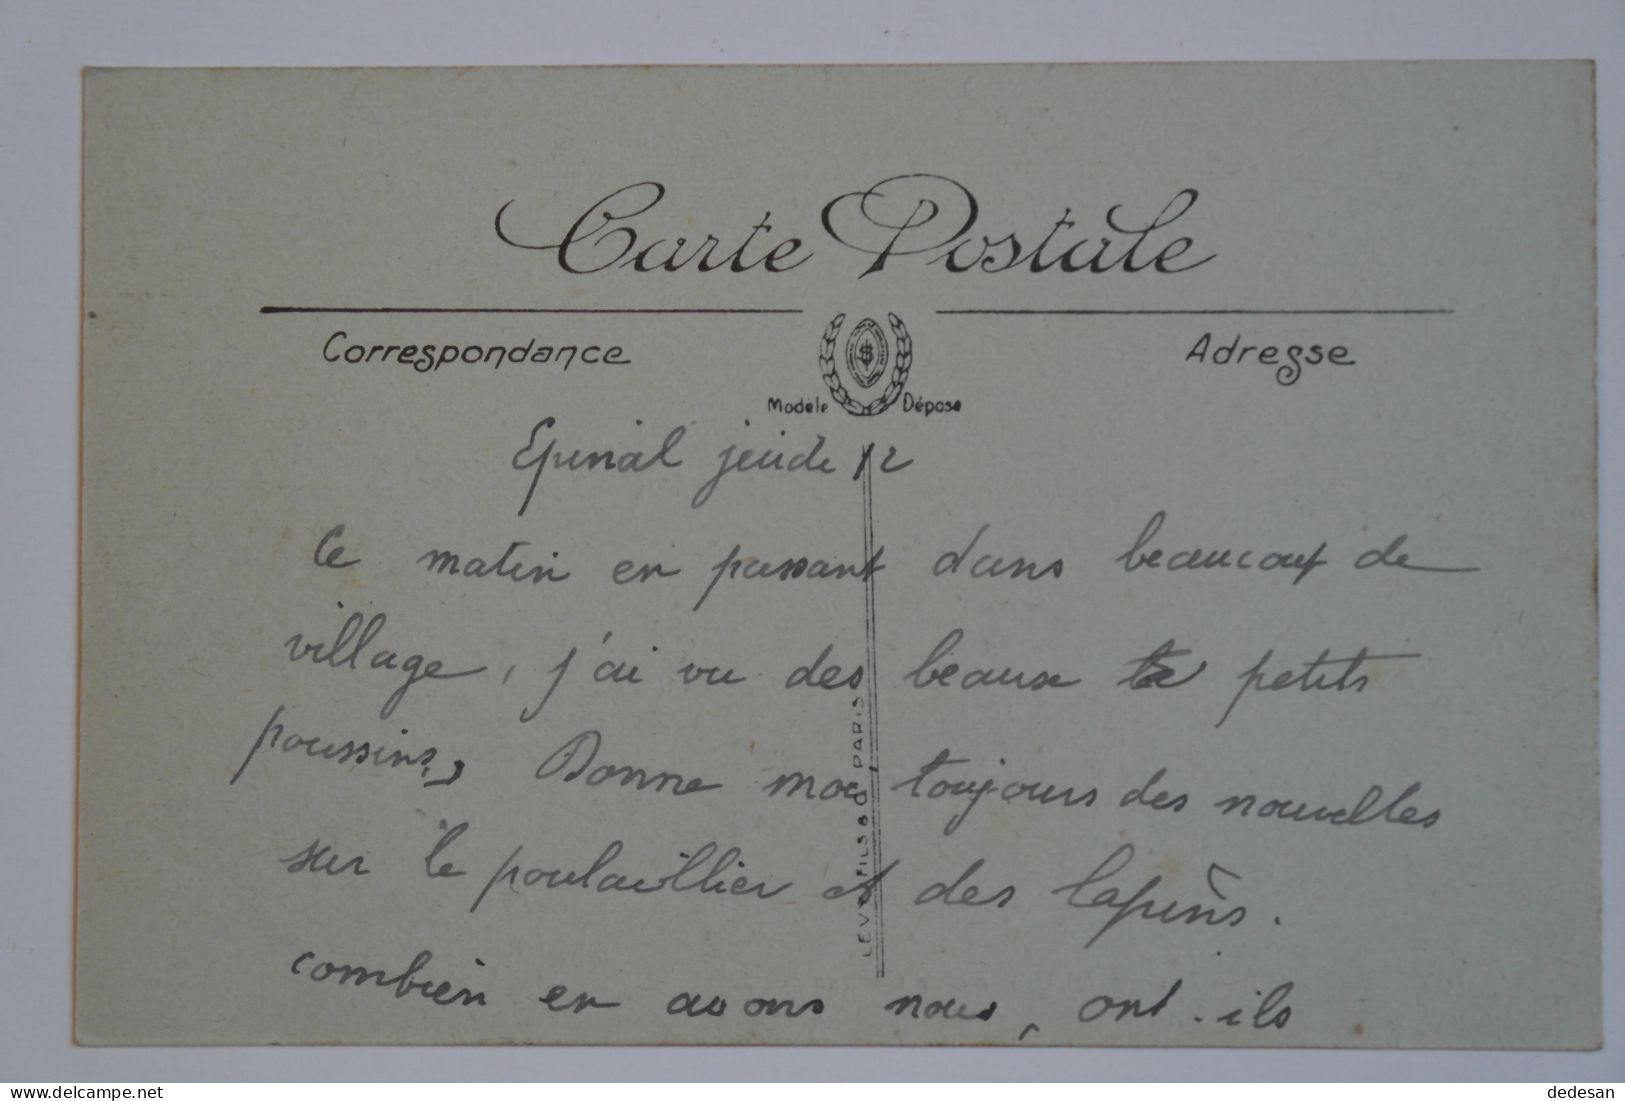 Carte Postale
Correspondance
Adresse
Modèle Déposé
Epinal jeudi 12
Ce matin en passant dans beaucoup de
village, j'ai vu des beaux petits
poussins, Donne moi toujours des nouvelles
sur le poulaillier et des lapins.
combien en avons nous, ont-ils
LEVY FILS & Cº PARIS
https://www.delcampe.net
dedesan